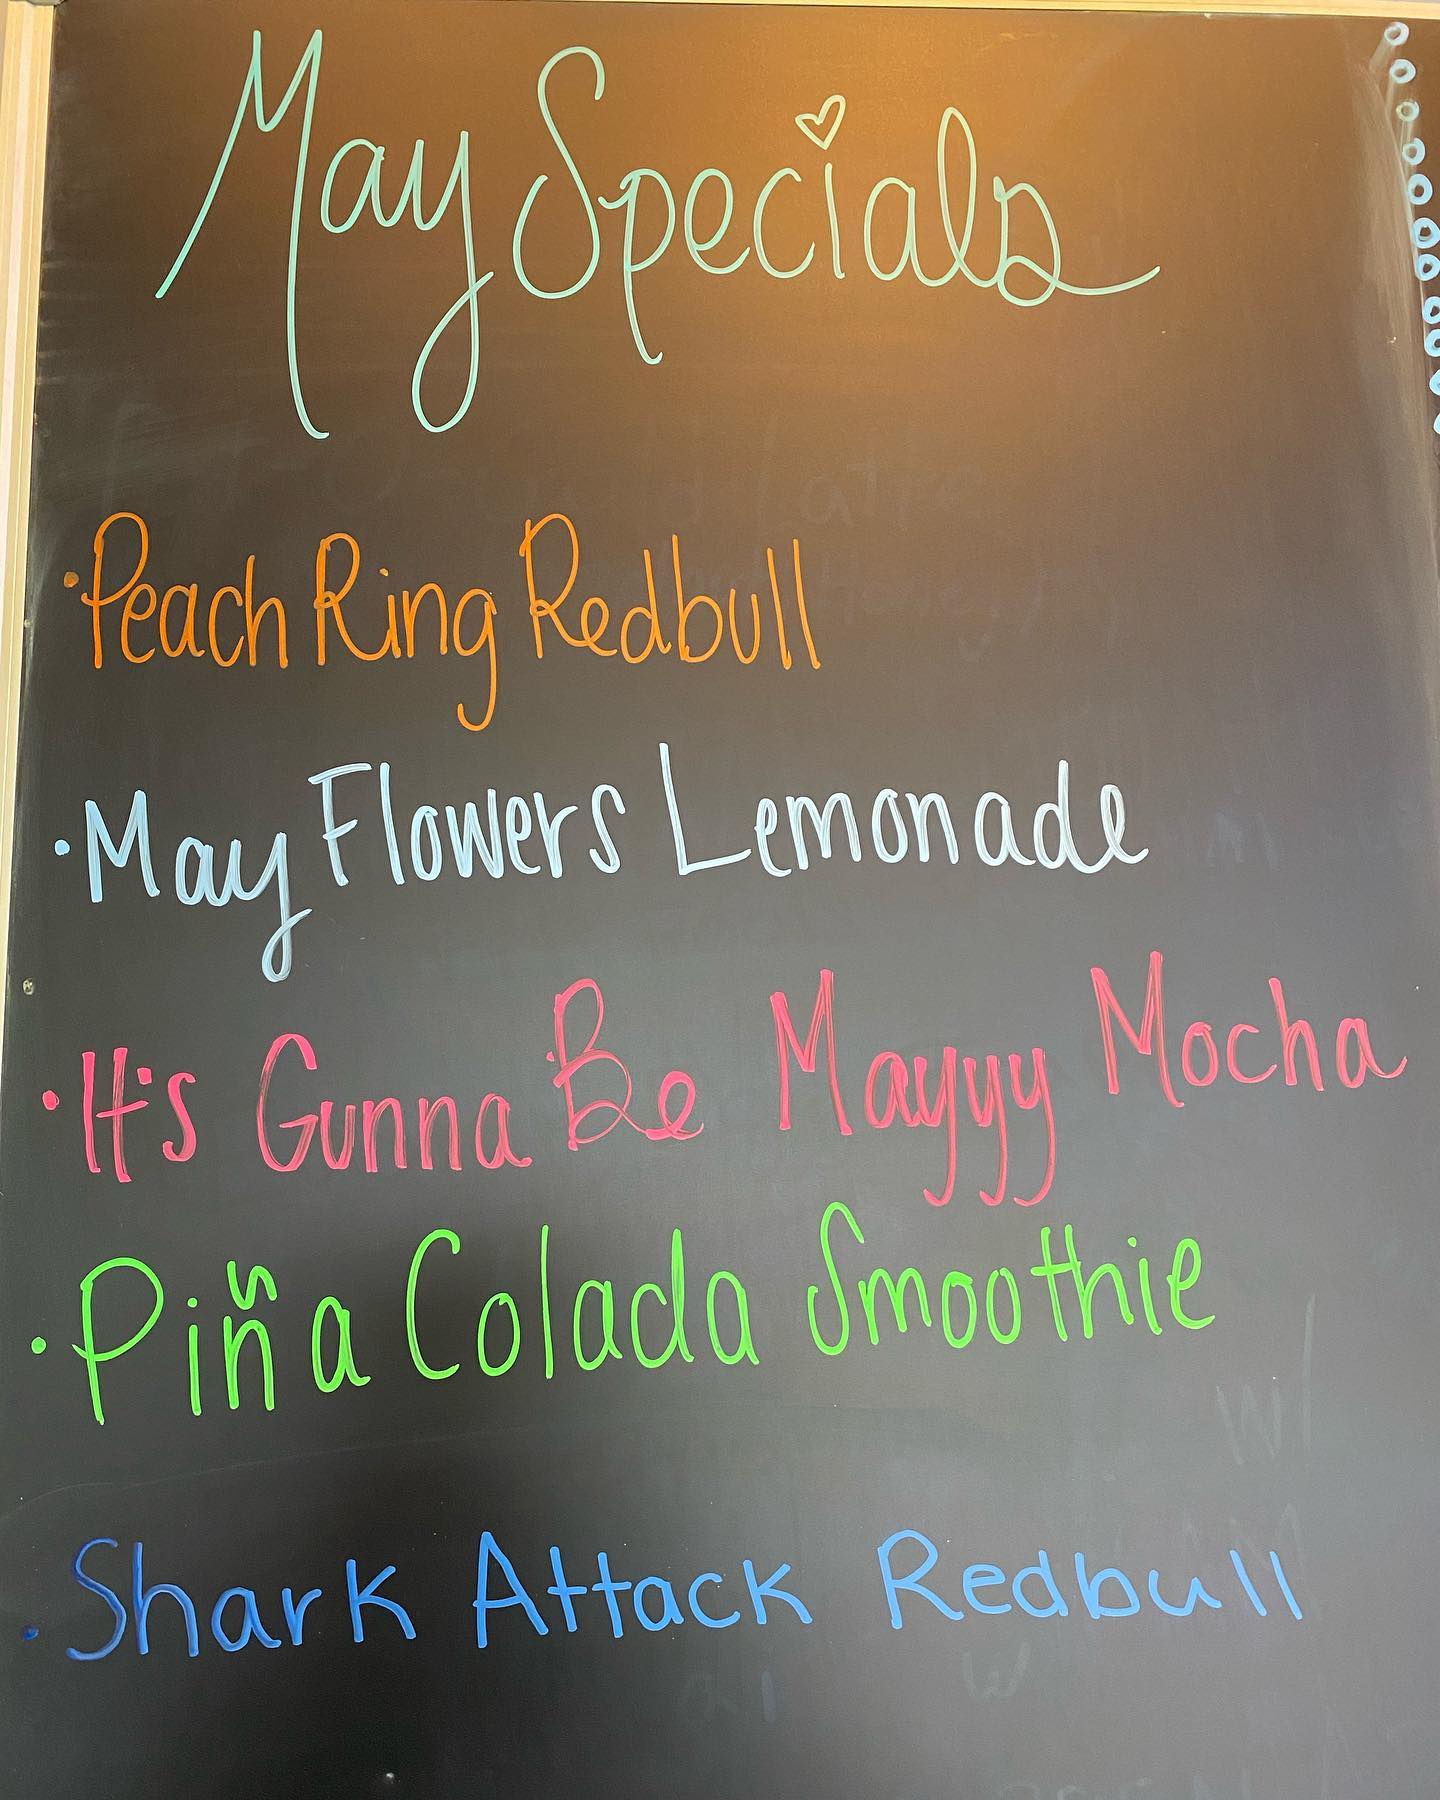 May Specials
· Peach Ring Redbull
· May Flowers Lemonade
· It's Gunna Be Mayyy Mocha
· Piña Colada Smoothie
· Shark Attack Redbull